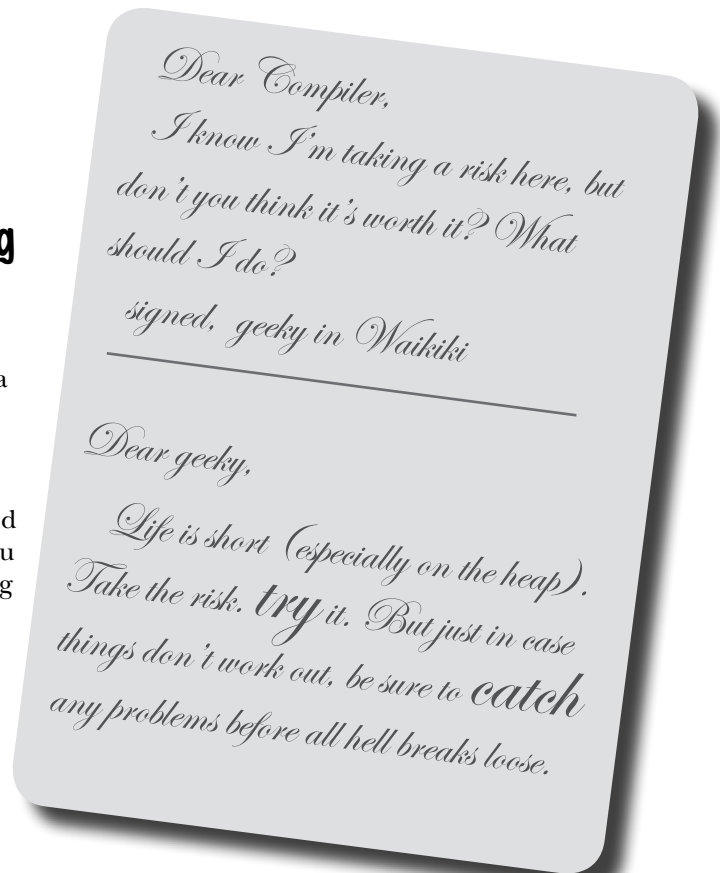 Dear Compiler,
I know I'm taking a risk here, but
don't you think it's worth it? What
should I do?
signed, geeky in Waikiki
g
a
Dear geeky,
d
u
g
Life is short (especially on the heap).
Take the risk. try it. But just in case
things don't work out, be sure to catch
any problems before all hell breaks loose.